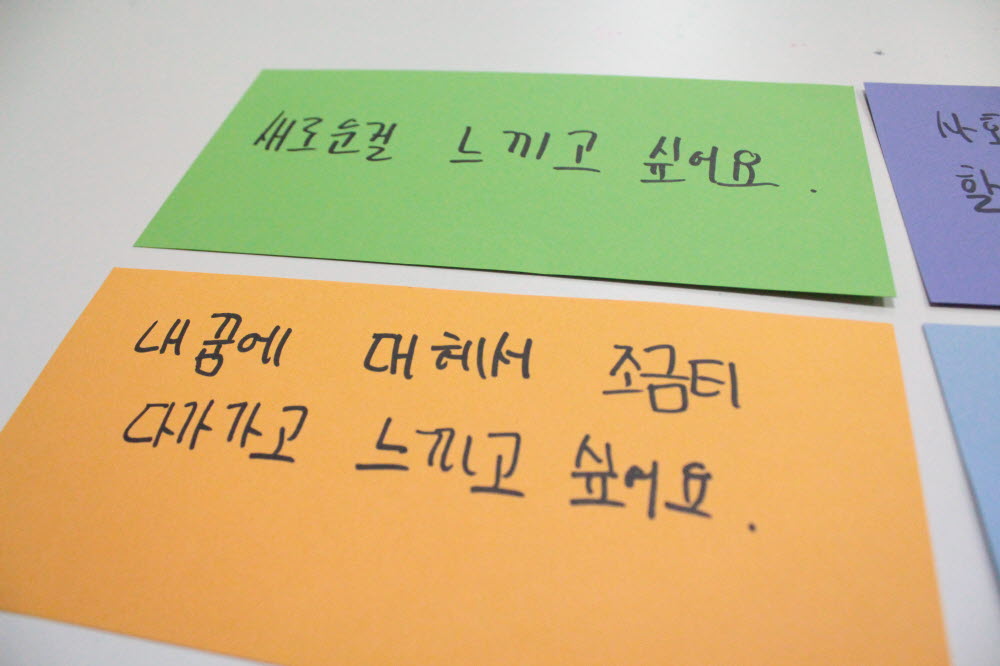 새로운걸 느끼고 싶어요.
사회
할
내꿈에 대헤서 조금티
다가가고 느끼고 싶어요.